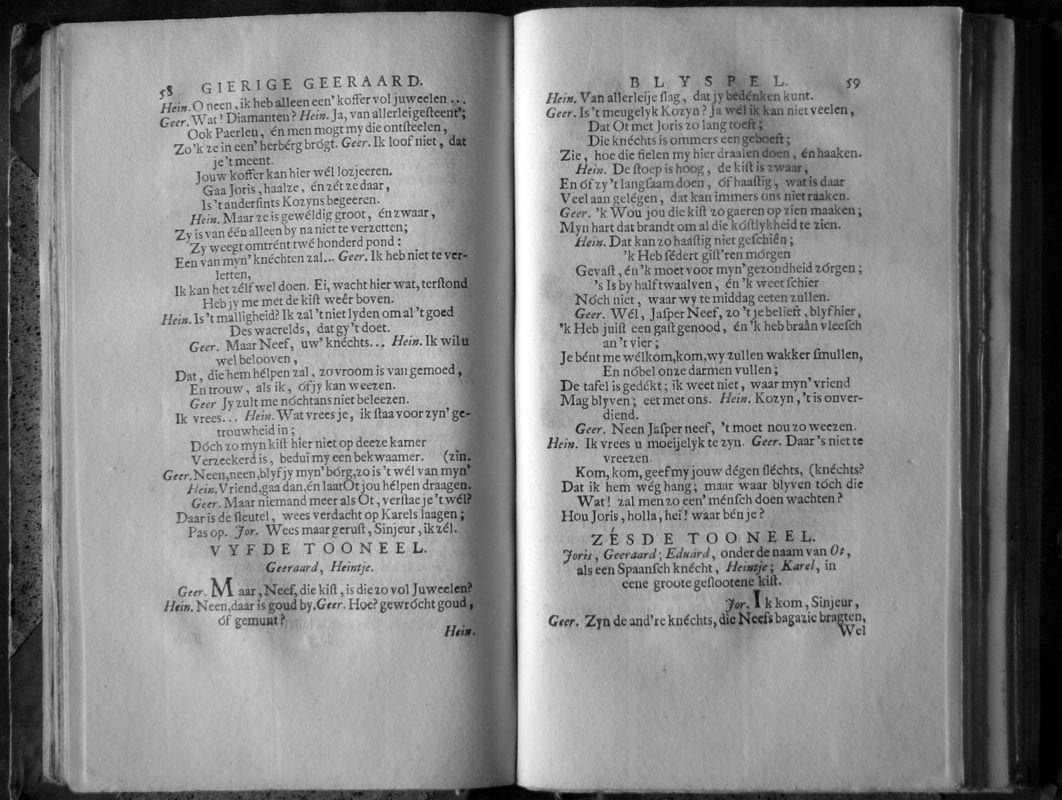 58 GIERIGE GEERAARD.
Hein. O neen, ik heb alleen een' koffer vol juweelen...
Geer. Wat! Diamanten? Hein. Ja, van allerlei gesteent';
Ook Paerlen, én men mogt my die ontsteelen,
Zo 'k ze in een' herbérg brógt. Geer. Ik loof niet, dat
je 't meent.
Jouw koffer kan hier wél lozjeeren.
Gaa Joris, haalze, én zét ze daar,
Is 't andersints Kozyns begeeren.
Hein. Maar ze is gewéldig groot, én zwaar,
Zy is van één alleen by na niet te verzetten;
Zy weegt omtrént twé honderd pond:
Een van myn' knéchten zal... Geer. Ik heb niet te ver-
letten,
Ik kan het zélf wel doen. Ei, wacht hier wat, terstond
Heb jy me met de kist weêr boven.
Hein. Is 't malligheid? Ik zal 't niet lyden om al 't goed
Des waerelds, dat gy 't doet.
Geer. Maar Neef, uw' knéchts... Hein. Ik wil u
wel belooven,
Dat, die hem hélpen zal, zo vroom is van gemoed,
En trouw, als ik, óf jy kan weezen.
Geer Jy zult me nóchtans niet beleezen.
Ik vrees... Hein. Wat vrees je, ik staa voor zyn' ge-
trouwheid in;
Dóch zo myn kist hier niet op deeze kamer
Verzeekerd is, bedui my een bekwaamer. (zin.
Geer. Neen, neen, blyf jy myn' bórg, zo is 't wél van myn'
Hein. Vriend, gaa dan, én laat Ot jou hélpen draagen.
Geer. Maar niemand meer als Ot, verstae je 't wél?
Daar is de sleutel, wees verdacht op Karels laagen;
Pas op. Jor. Wees maar gerust, Sinjeur, ik zél.
VYFDE TOONEEL.
Geeraard, Heintje.
Geer. Maar, Neef, die kist, is die zo vol Juweelen?
Hein. Neen, daar is goud by. Geer. Hoe? gewrócht goud,
óf gemunt?
Hein.
BLYSPEL. 59
Hein. Van allerleije slag, dat jy bedénken kunt.
Geer. Is 't meugelyk Kozyn? Ja wél ik kan niet veelen,
Dat Ot met Joris zo lang toeft;
Die knéchts is ommers een geboeft;
Zie, hoe die fielen my hier draaien doen, én haaken.
Hein. De stoep is hoog, de kist is zwaar,
En óf zy 't langsaam doen, óf haastig, wat is daar
Veel aan gelégen, dat kan immers ons niet raaken.
Geer. 'k Wou jou die kist zo gaeren op zien maaken;
Myn hart dat brandt om al die kóstlykheid te zien.
Hein. Dat kan zo haastig niet geschiên;
'k Heb sédert gist'ren mórgen
Gevast, én 'k moet voor myn' gezondheid zórgen;
's Is by half twaalven, én 'k weet schier
Nóch niet, waar wy te middag eeten zullen.
Geer. Wél, Jasper Neef, zo 't je belieft, blyf hier,
'k Heb juist een gast genood, én 'k heb braân vleesch
an 't vier;
Je bént me wélkom, kom, wy zullen wakker smullen,
En nóbel onze darmen vullen;
De tafel is gedékt; ik weet niet, waar myn' vriend
Mag blyven; eet met ons. Hein. Kozyn, 't is onver-
diend.
Geer. Neen Jasper neef, 't moet nou zo weezen.
Hein. Ik vrees u moeijelyk te zyn. Geer. Daar 's niet te
vreezen.
Kom, kom, geef my jouw dégen sléchts, (knéchts?
Dat ik hem wég hang; maar waar blyven tóch die
Wat! zal men zo een' ménsch doen wachten?
Hou Joris, holla, hei! waar bén je?
ZÉSDE TOONEEL.
Joris, Geeraard; Eduard, onder de naam van Ot,
als een Spaansch knécht, Heintje; Karel, in
eene groote geslootene kist.
Jor. Ik kom, Sinjeur,
Geer. Zyn de and're knéchts, die Neefs bagazie bragten,
Wel